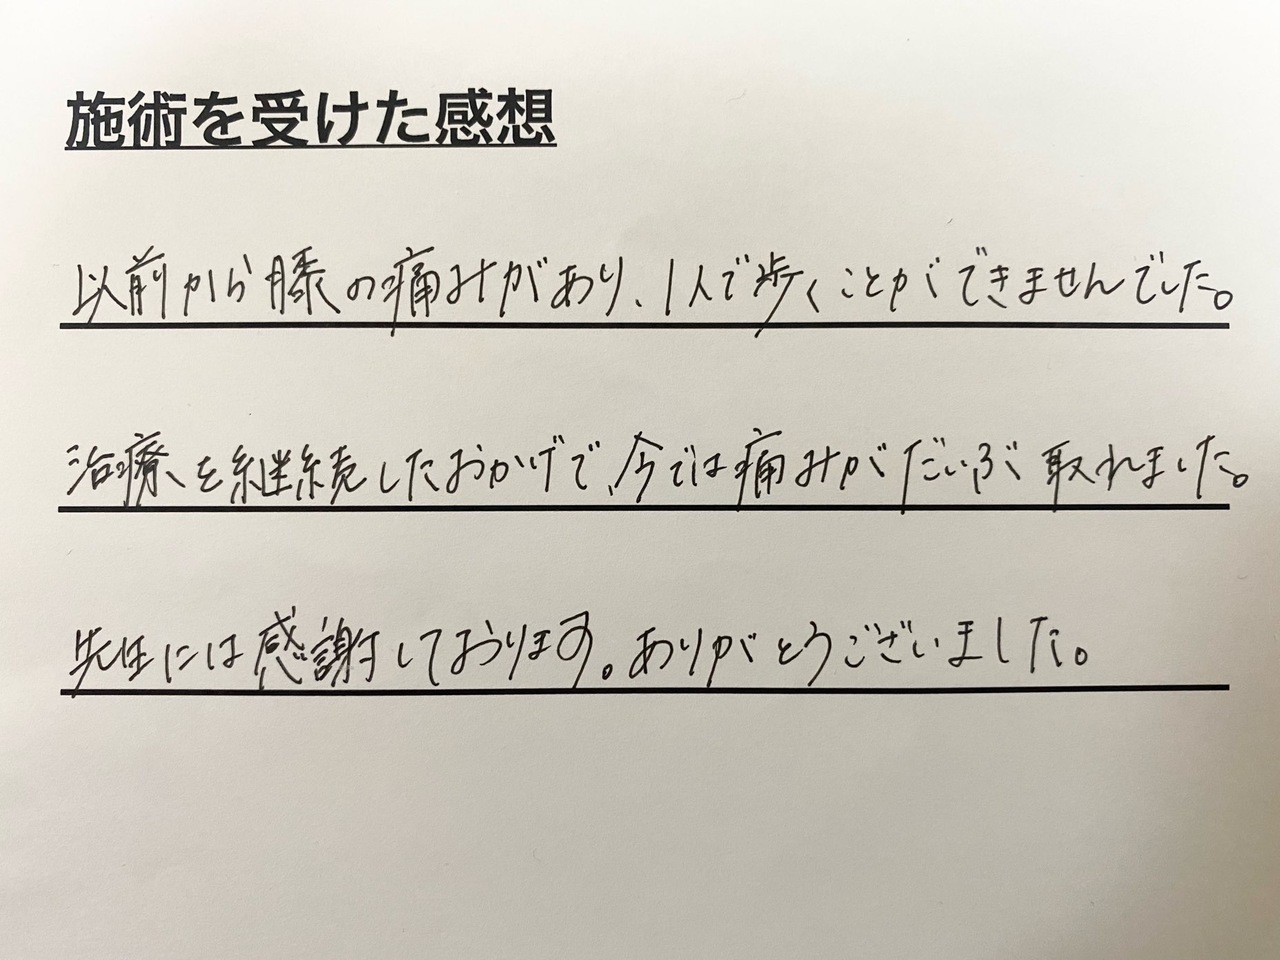 施術を受けた感想
以前から膝の痛みがあり、1人で歩くことができませんでした。
治療を継続したおかげで、今では痛みがだいぶ取れました。
先生には感謝しております。ありがとうございました。